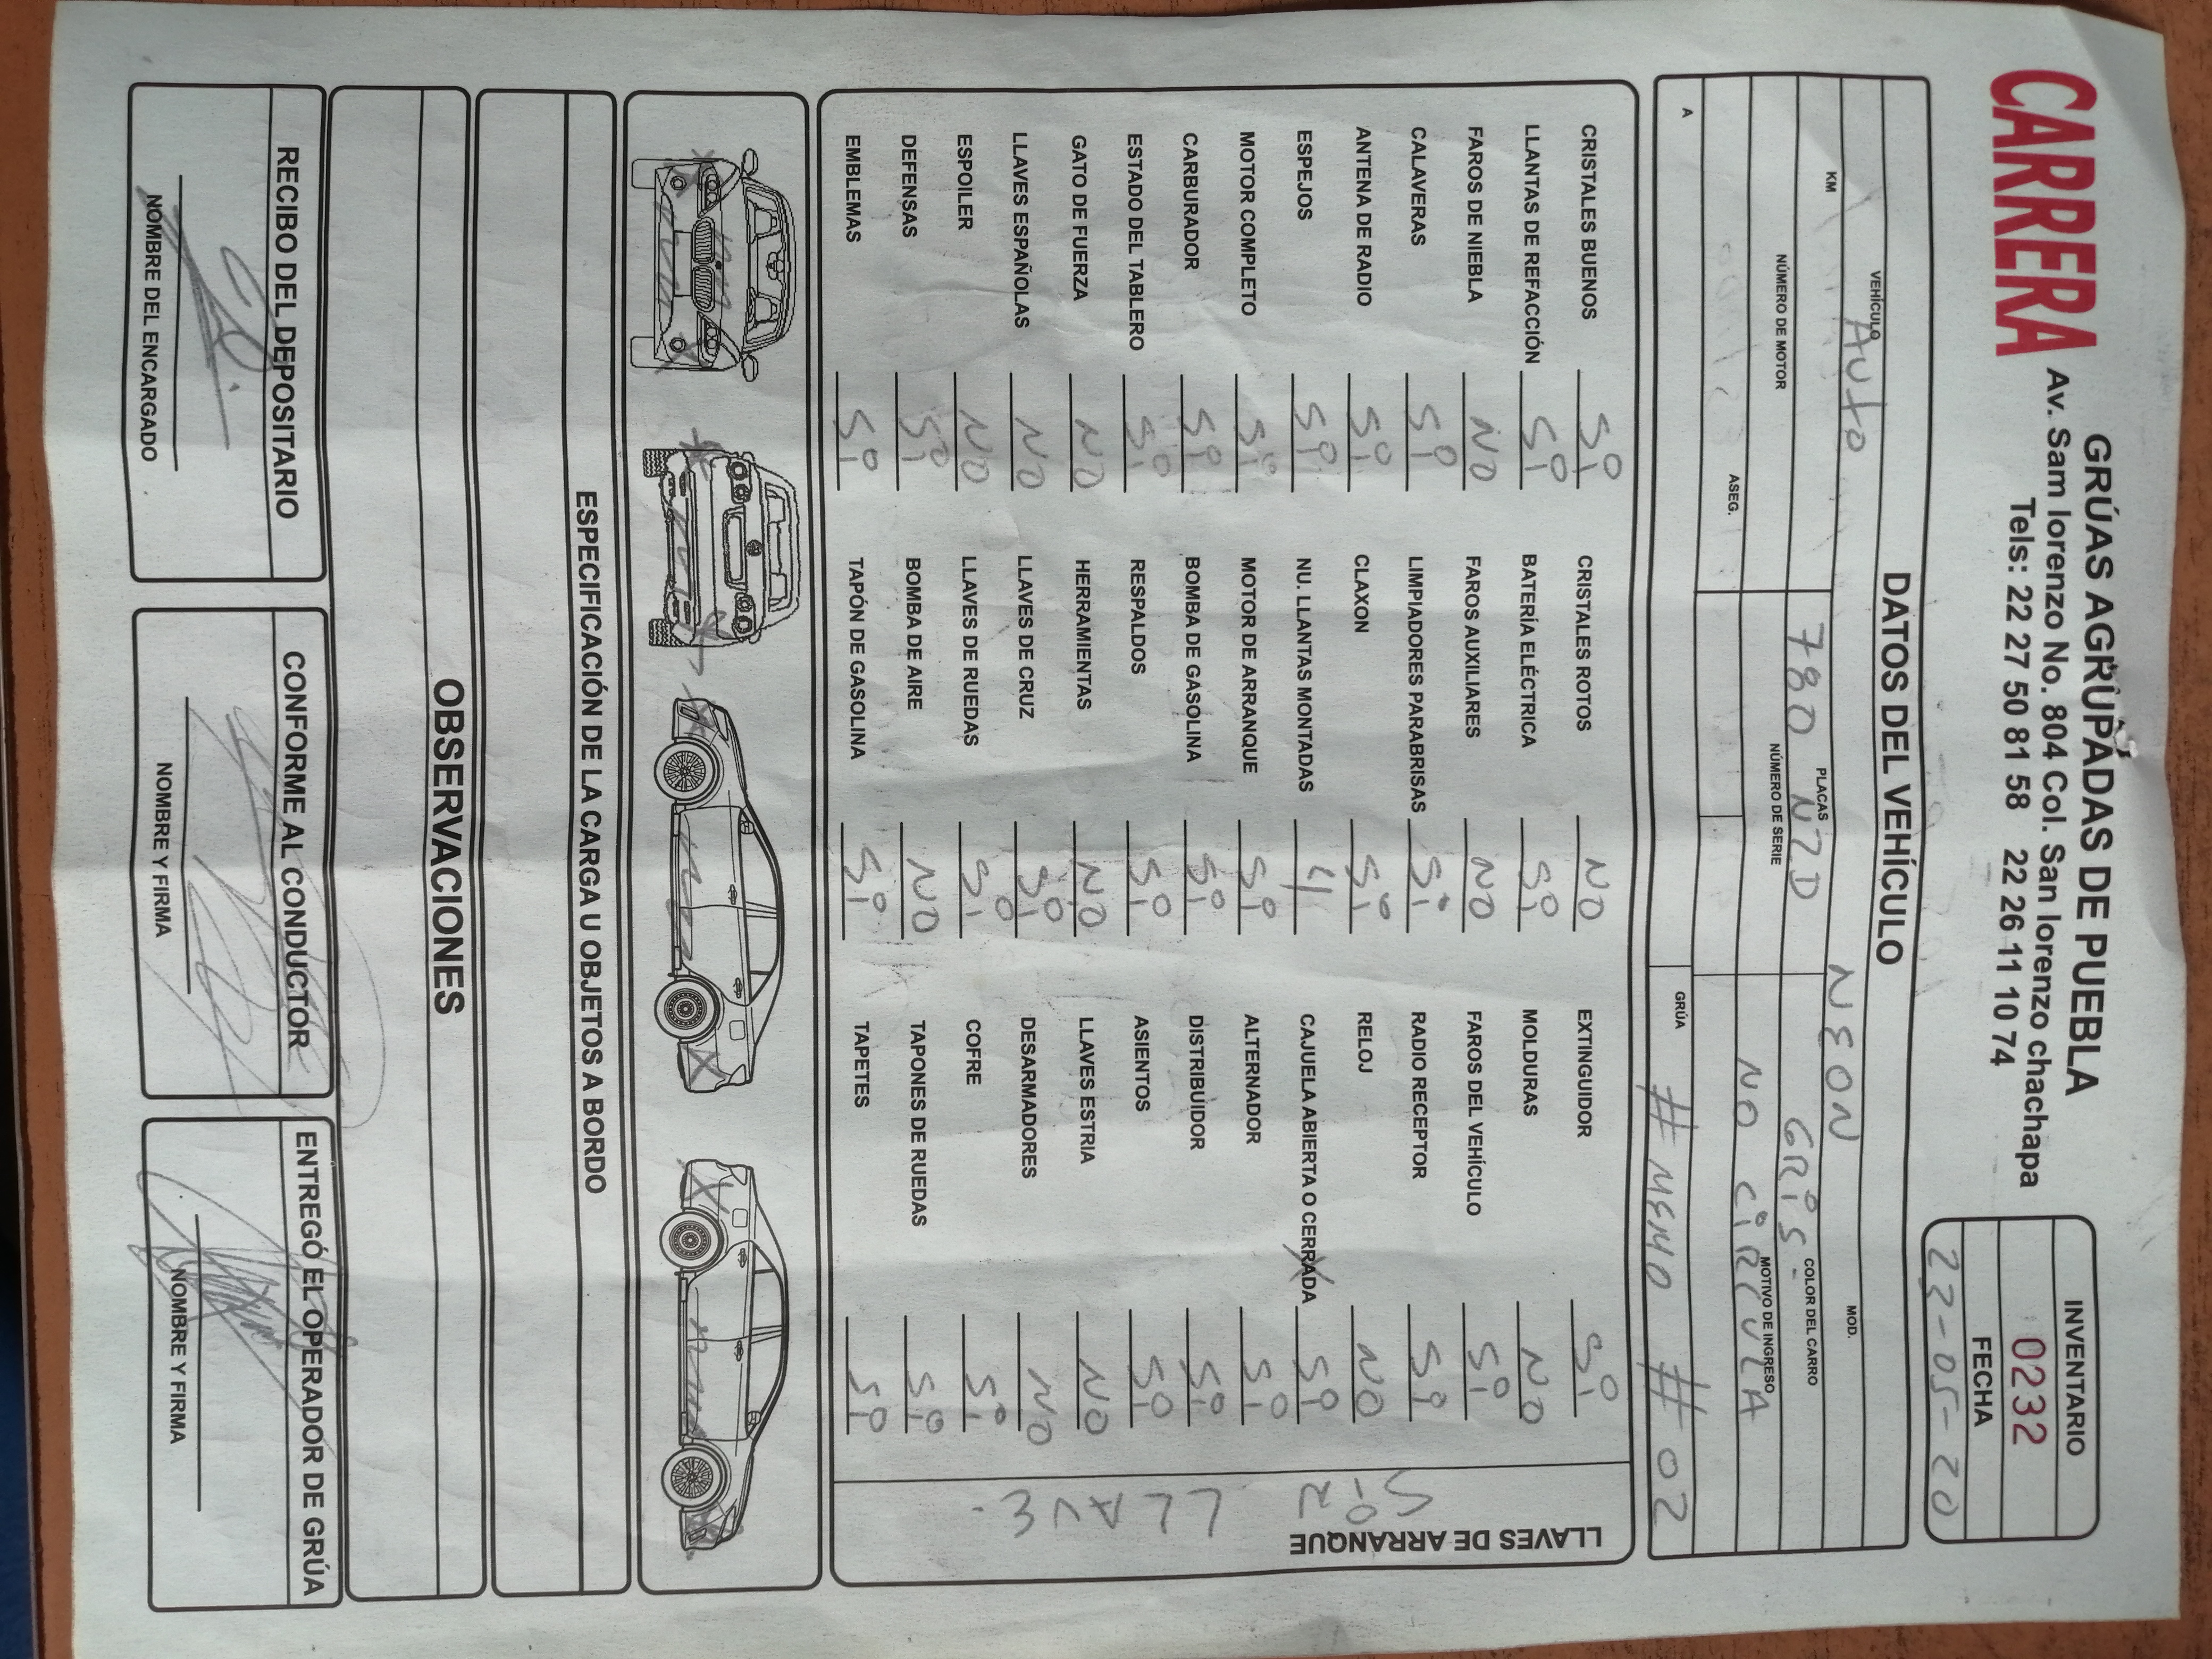 CARRERA
GRÚAS AGRUPADAS DE PUEBLA
Av. Sam lorenzo No. 804 Col. San lorenzo chachapa
Tels: 22 27 50 81 58 22 26 11 10 74
INVENTARIO
0232
FECHA
22-05-20
DATOS DEL VEHÍCULO
VEHÍCULO Auto NEON MOD.
KM 780 NZD PLACAS GRiS COLOR DEL CARRO
NÚMERO DE MOTOR NÚMERO DE SERIE NO CiRCULA MOTIVO DE INGRESO
ASEG.
A GRÚA # MEMO # 02
CRISTALES BUENOS Si CRISTALES ROTOS NO EXTINGUIDOR Si
LLANTAS DE REFACCIÓN Si BATERÍA ELÉCTRICA Si MOLDURAS NO
FAROS DE NIEBLA NO FAROS AUXILIARES NO FAROS DEL VEHÍCULO Si
CALAVERAS Si LIMPIADORES PARABRISAS Si RADIO RECEPTOR Si
ANTENA DE RADIO Si CLAXON Si RELOJ NO
ESPEJOS Si NU. LLANTAS MONTADAS 4 CAJUELA ABIERTA O CERRADA Si
MOTOR COMPLETO Si MOTOR DE ARRANQUE Si ALTERNADOR Si
CARBURADOR Si BOMBA DE GASOLINA Si DISTRIBUIDOR Si
ESTADO DEL TABLERO Si RESPALDOS Si ASIENTOS Si
GATO DE FUERZA NO HERRAMIENTAS NO LLAVES ESTRIA NO
LLAVES ESPAÑOLAS NO LLAVES DE CRUZ Si DESARMADORES NO
ESPOILER NO LLAVES DE RUEDAS Si COFRE Si
DEFENSAS Si BOMBA DE AIRE NO TAPONES DE RUEDAS Si
EMBLEMAS Si TAPÓN DE GASOLINA Si TAPETES Si
LLAVES DE ARRANQUE
SiN LLAVE.
ESPECIFICACIÓN DE LA CARGA U OBJETOS A BORDO
OBSERVACIONES
RECIBO DEL DEPOSITARIO
NOMBRE DEL ENCARGADO
CONFORME AL CONDUCTOR
NOMBRE Y FIRMA
ENTREGÓ EL OPERADOR DE GRÚA
NOMBRE Y FIRMA